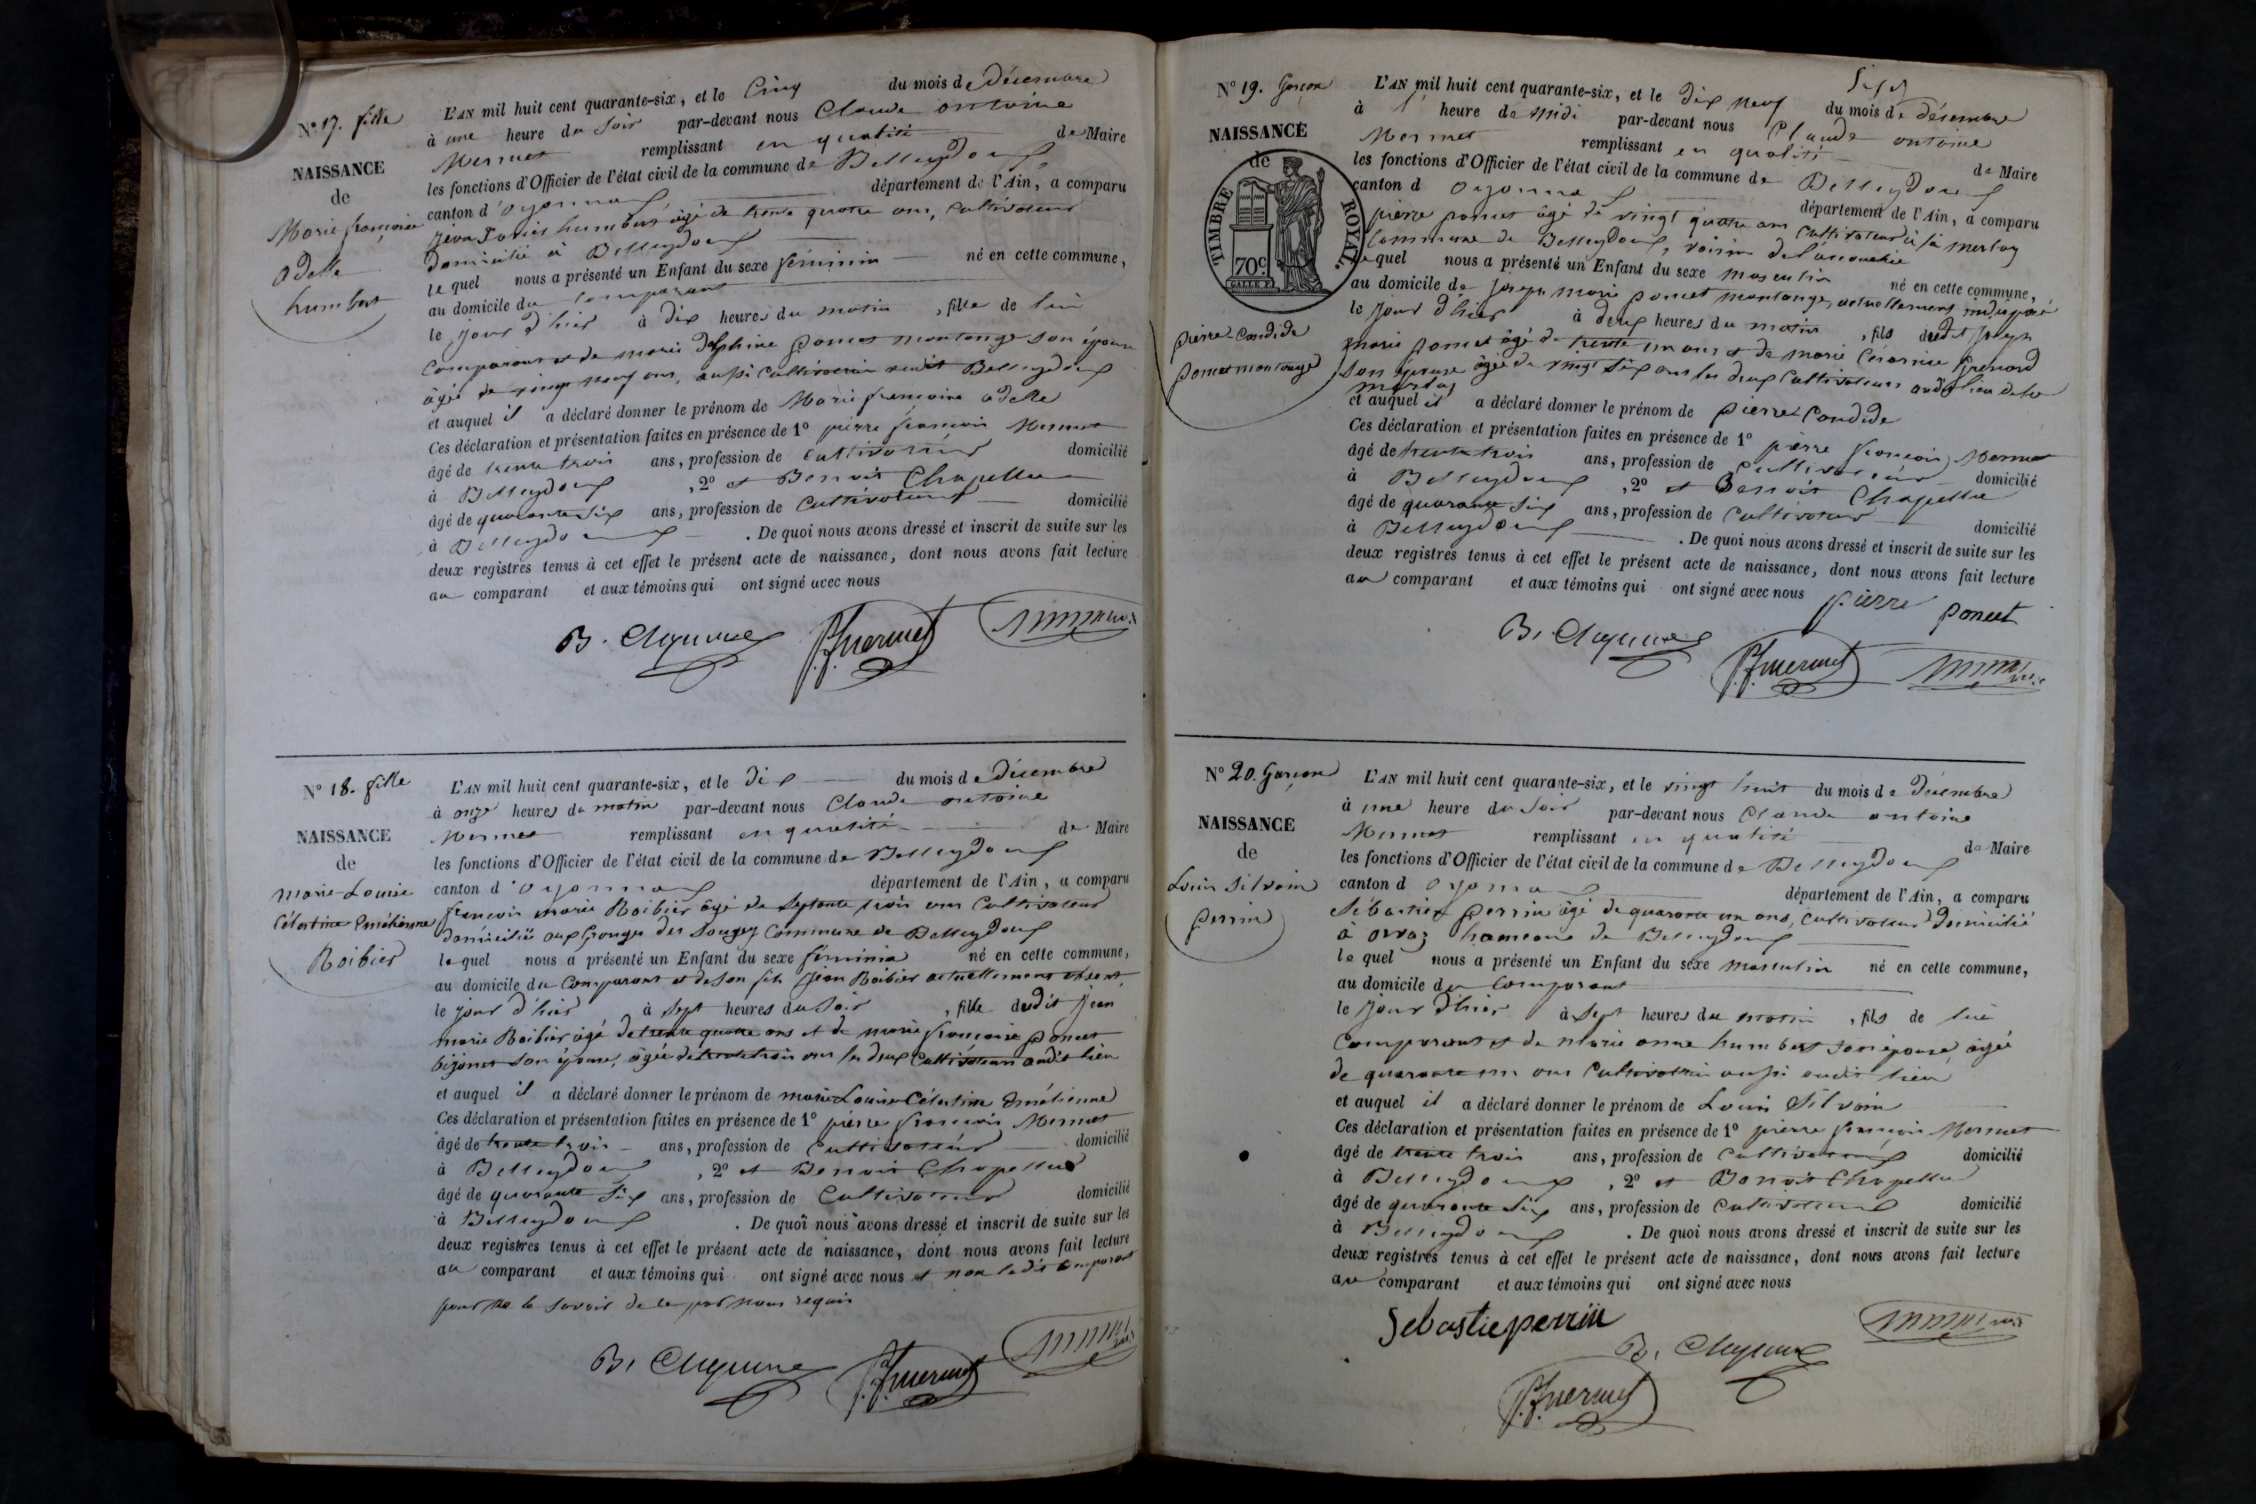 N° 17. fille
NAISSANCE
de
Marie françoise
adelle
humbert
L'AN mil huit cent quarante-six, et le Cinq du mois de Décembre
à une heure du Soir par-devant nous Claude antoine
Mermet remplissant en qualité de Maire
les fonctions d'Officier de l'état civil de la commune de Belleydoux
canton d'oyonnax département de l'Ain, a comparu
humbert âgé de trente quatre ans, Cultivateur
domicilié à Belleydoux
lequel nous a présenté un Enfant du sexe féminin né en cette commune,
au domicile du comparant
le jour d'hier à dix heures du matin, fille de lui
Comparant et de marie delphine poncet montange son épouse
âgée de vingt neuf ans, aussi Cultivatrice Belleydoux
et auquel il a déclaré donner le prénom de Marie françoise adelle
Ces déclaration et présentation faites en présence de 1° pierre françois Mermet
âgé de trente trois ans, profession de Cultivateur domicilié
à Belleydoux, 2° et Benoit Chapelle
âgé de quarante six ans, profession de Cultivateur domicilié
à Belleydoux. De quoi nous avons dressé et inscrit de suite sur les
deux registres tenus à cet effet le présent acte de naissance, dont nous avons fait lecture
au comparant et aux témoins qui ont signé avec nous
P.f mermet
N° 18. fille
NAISSANCE
de
marie Louise
Célestine Emélienne
Roibier
L'AN mil huit cent quarante-six, et le Dix du mois de Décembre
à onze heures du matin par-devant nous Claude antoine
Mermet remplissant en qualité de Maire
les fonctions d'Officier de l'état civil de la commune de Belleydoux
canton d'oyonnax département de l'Ain, a comparu
françois marie Roibier âgé de Septante trois ans Cultivateur
domicilié aux Granges des Commune de Belleydoux
lequel nous a présenté un Enfant du sexe féminin né en cette commune,
au domicile du Comparant et de Son fils Jean Roibier actuellement absent,
le jour d'hier à sept heures du Soir, fille dudit Jean
marie Roibier âgé de trente quatre ans et de marie françoise poncet
bijonet son épouse, âgée de trente trois ans les deux Cultivateurs audit lieu
et auquel il a déclaré donner le prénom de marie Louise Célestine Emélienne
Ces déclaration et présentation faites en présence de 1° pierre françois Mermet
âgé de trente trois ans, profession de Cultivateur domicilié
à Belleydoux, 2° et Benoit Chapelle
âgé de quarante six ans, profession de Cultivateur domicilié
à Belleydoux. De quoi nous avons dressé et inscrit de suite sur les
deux registres tenus à cet effet le présent acte de naissance, dont nous avons fait lecture
au comparant et aux témoins qui ont signé avec nous et non ledit comparant
pour ne le savoir de ce par nous requis
P.f mermet
N° 19. Garçon
NAISSANCE
de
TIMBRE ROYAL.
70c
pierre Candide
poncet montange
L'AN mil huit cent quarante-six, et le dix neuf du mois de décembre
à 1 heure de midi par-devant nous Claude antoine
Mermet remplissant en qualité de Maire
les fonctions d'Officier de l'état civil de la commune de Belleydoux
canton d oyonnax département de l'Ain, a comparu
pierre poncet âgé de vingt quatre ans Cultivateur
Commune de Belleydoux, voisin de l'accouchée
lequel nous a présenté un Enfant du sexe masculin né en cette commune,
au domicile de Joseph marie poncet montange, actuellement indisposé
le jour d'hier à deux heures du matin, fils dudit Joseph
marie poncet âgé de trente un ans et de marie Grenard
Son épouse âgée de vingt six ans les deux Cultivateurs audit lieu
et auquel il a déclaré donner le prénom de pierre Candide
Ces déclaration et présentation faites en présence de 1° pierre françois Mermet
âgé de trente trois ans, profession de Cultivateur domicilié
à Belleydoux, 2° et Benoit Chapelle
âgé de quarante six ans, profession de Cultivateur domicilié
à Belleydoux. De quoi nous avons dressé et inscrit de suite sur les
deux registres tenus à cet effet le présent acte de naissance, dont nous avons fait lecture
au comparant et aux témoins qui ont signé avec nous pierre poncet
P.f mermet
N° 20. Garçon
NAISSANCE
de
Louis Silvain
perrin
L'AN mil huit cent quarante-six, et le vingt huit du mois de Décembre
à une heure du Soir par-devant nous Claude antoine
Mermet remplissant en qualité de Maire
les fonctions d'Officier de l'état civil de la commune de Belleydoux
canton d oyonnax département de l'Ain, a comparu
Sébastien perrin âgé de quarante un ans, Cultivateur domicilié
à orvaz hameau de Belleydoux
lequel nous a présenté un Enfant du sexe masculin né en cette commune,
au domicile du Comparant
le jour d'hier à Sept heures du matin, fils de lui
Comparant et de Marie anne humbert son épouse âgée
de quarante un ans Cultivatrice aussi audit lieu
et auquel il a déclaré donner le prénom de Louis Silvain
Ces déclaration et présentation faites en présence de 1° pierre françois Mermet
âgé de trente trois ans, profession de Cultivateur domicilié
à Belleydoux, 2° et Benoit Chapelle
âgé de quarante six ans, profession de Cultivateur domicilié
à Belleydoux. De quoi nous avons dressé et inscrit de suite sur les
deux registres tenus à cet effet le présent acte de naissance, dont nous avons fait lecture
au comparant et aux témoins qui ont signé avec nous
Sebastie perrin
P.f mermet